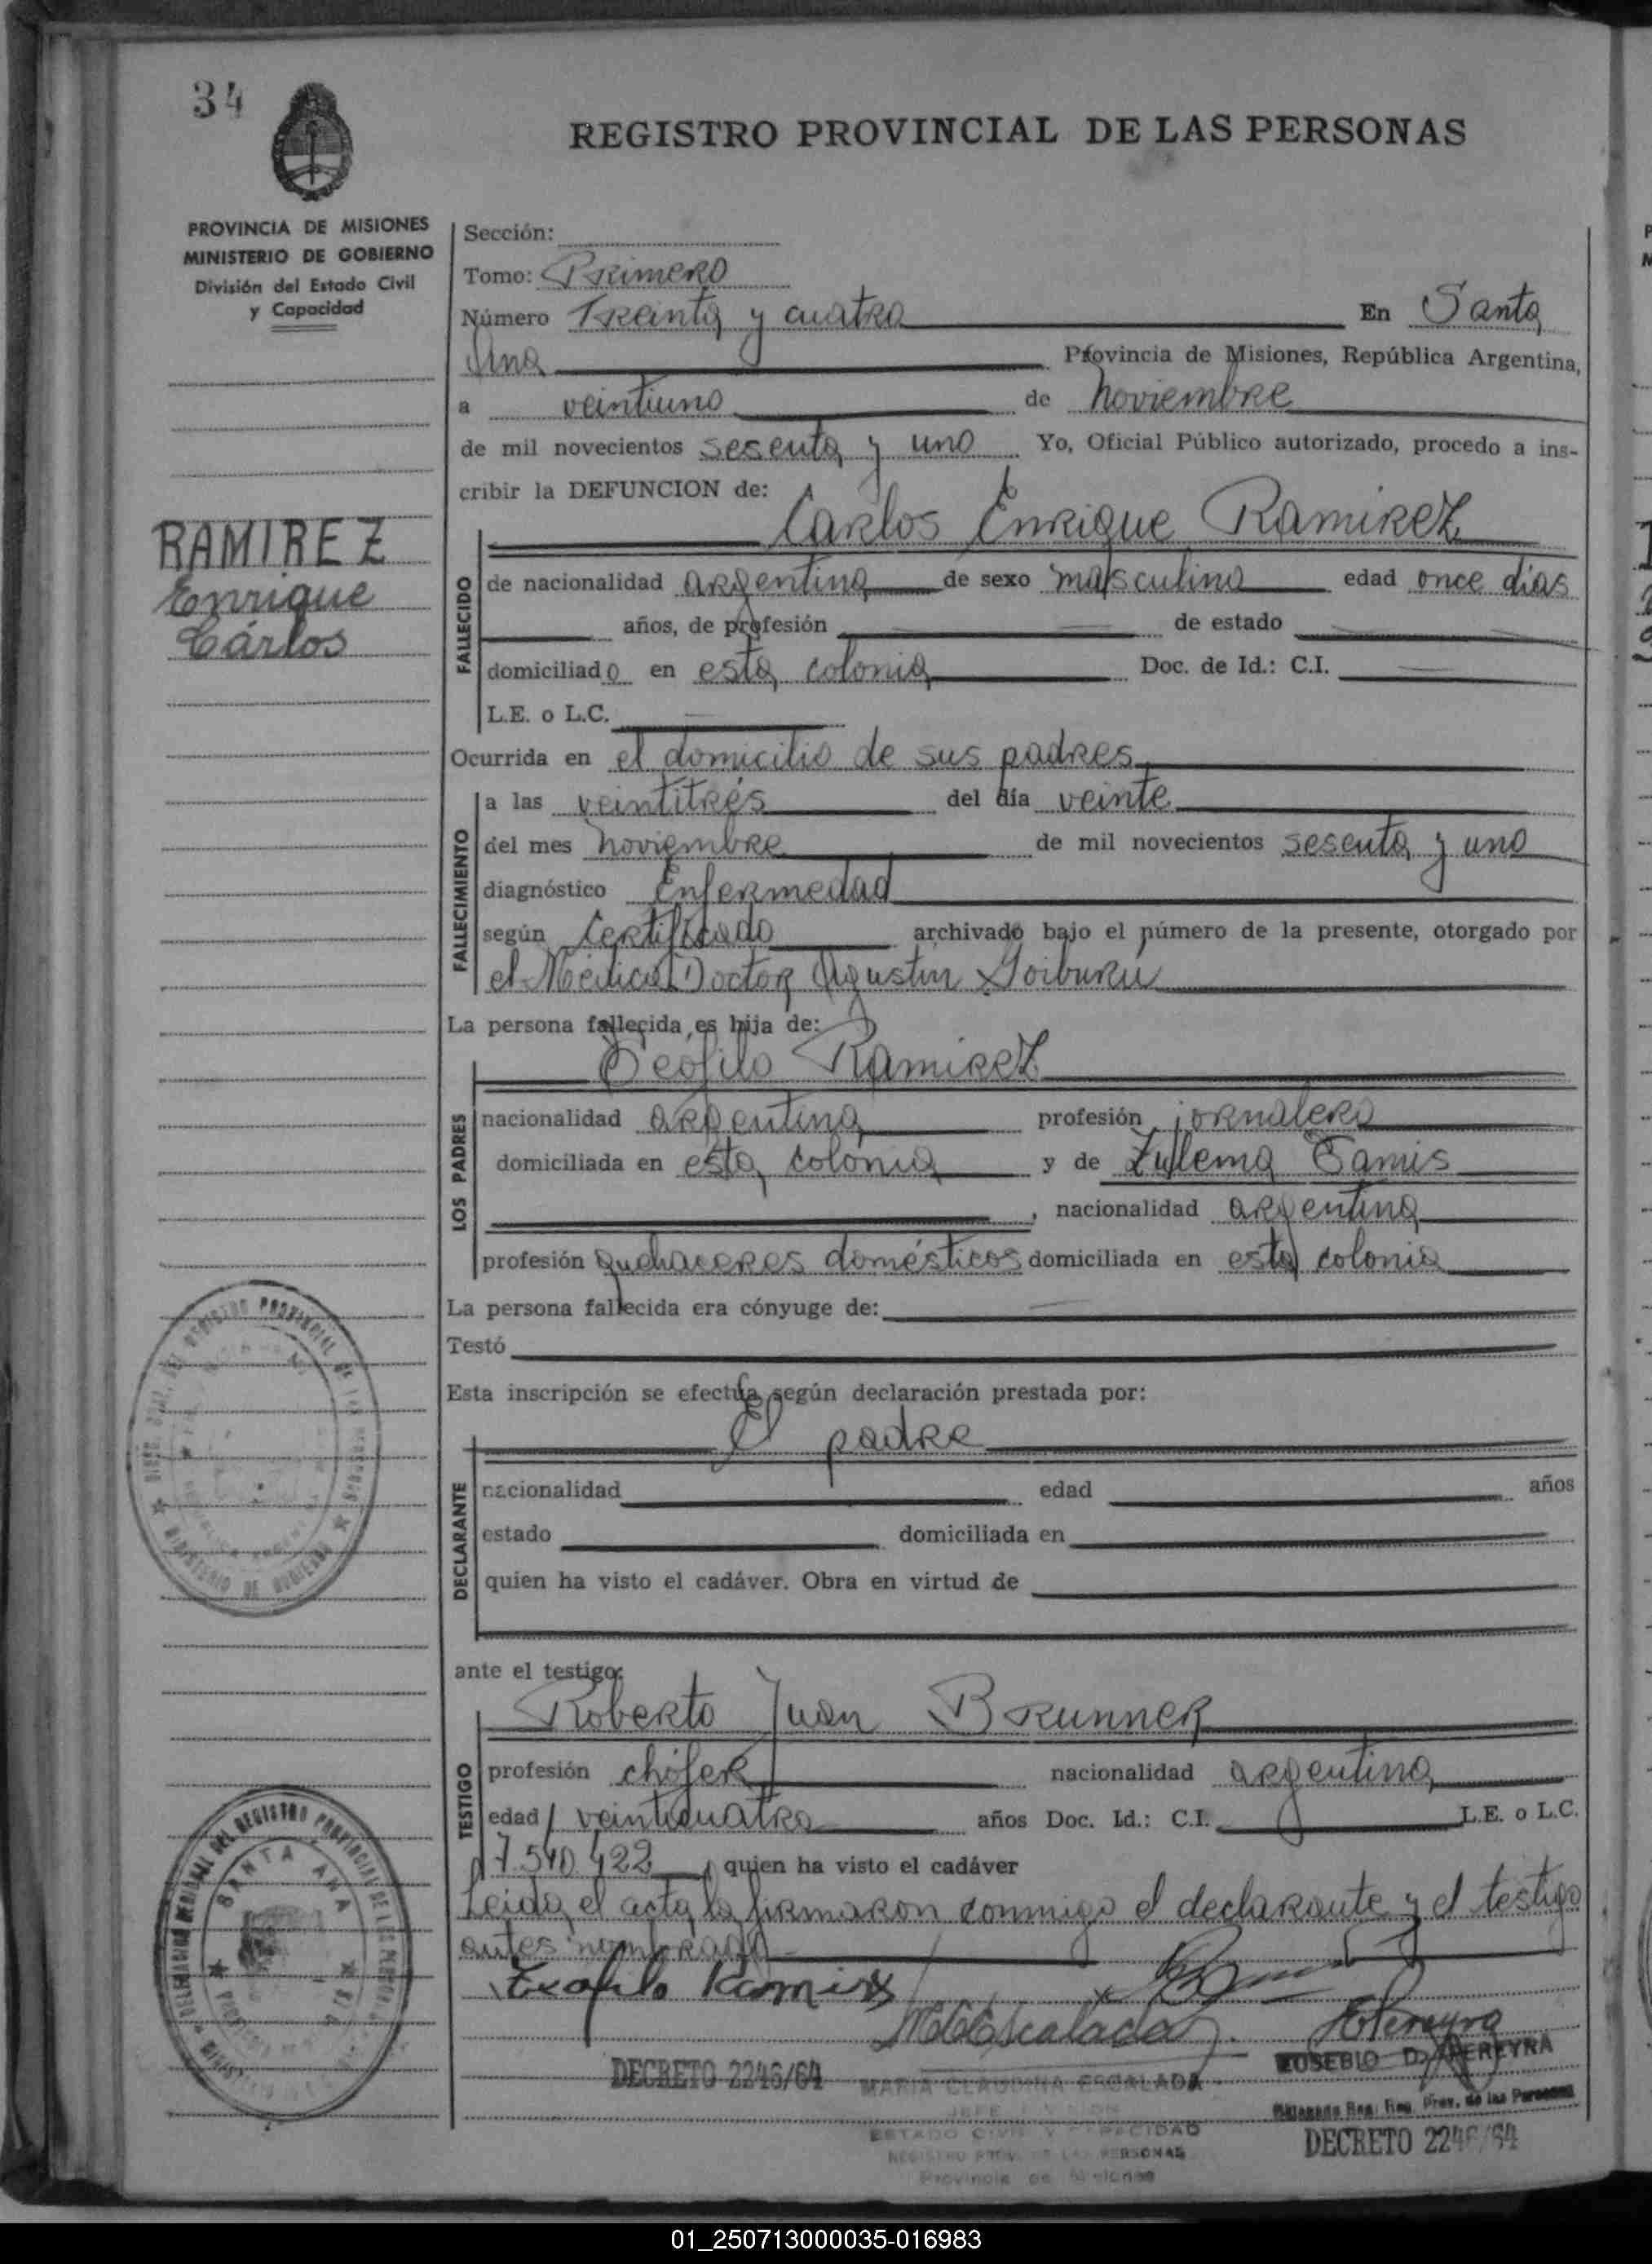 34
REGISTRO PROVINCIAL DE LAS PERSONAS
PROVINCIA DE MISIONES
MINISTERIO DE GOBIERNO
División del Estado Civil
y Capacidad
RAMIREZ
Enrique
Cárlos
Sección:
Tomo: Primero
Número Treinta y cuatro En Santa
Ana Provincia de Misiones, República Argentina,
a veintiuno de noviembre
de mil novecientos sesenta y uno Yo, Oficial Público autorizado, procedo a ins-
cribir la DEFUNCION de:
Carlos Enrique Ramirez
FALLECIDO
de nacionalidad argentina de sexo masculino edad once días
años, de profesión de estado
domiciliado en esta colonia Doc. de Id.: C.I.
L.E. o L.C.
Ocurrida en el domicilio de sus padres
FALLECIMIENTO
a las veintitrés del día veinte
del mes noviembre de mil novecientos sesenta y uno
diagnóstico Enfermedad
según Certificado archivado bajo el número de la presente, otorgado por
el Médico Doctor Agustín Goiburú
La persona fallecida es hija de:
Teófilo Ramirez
LOS PADRES
nacionalidad argentina profesión jornalero
domiciliada en esta colonia y de Zulema
, nacionalidad argentina
profesión quehaceres domésticos domiciliada en esta colonia
La persona fallecida era cónyuge de:
Testó
Esta inscripción se efectúa según declaración prestada por:
El padre
DECLARANTE
nacionalidad edad años
estado domiciliada en
quien ha visto el cadáver. Obra en virtud de
ante el testigo:
Roberto Juan Brunner
TESTIGO
profesión chófer nacionalidad argentina
edad veinticuatro años Doc. Id.: C.I. L.E. o L.C.
7.540.422 quien ha visto el cadáver
Leida el acta la firmaron conmigo el declarante y el testigo
antes nombrado
Teofilo Ramirez
MCEscalada
EPereyra
DECRETO 2246/64
MARIA CLAUDINA ESCALADA
JEFE DIVISION
ESTADO CIVIL Y CAPACIDAD
REGISTRO PROV. DE LAS PERSONAS
Provincia de Misiones
EUSEBIO D. PEREYRA
Delegado Reg. Prov. de las Personas
DECRETO 2246/64
DEL REGISTRO PROVINCIAL DE LAS PERSONAS
MINISTERIO DE GOBIERNO
DEL REGISTRO PROVINCIAL DE LAS PERSONAS
SANTA ANA
01_250713000035-016983